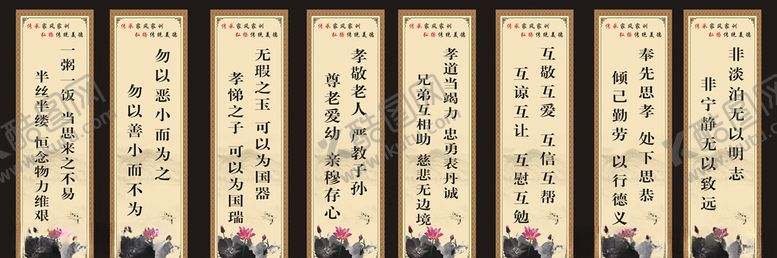 传承家风家训
弘扬传统美德
一粥一饭 当思来之不易
半丝半缕 恒念物力维艰
传承家风家训
弘扬传统美德
勿以恶小而为之
勿以善小而不为
传承家风家训
弘扬传统美德
无瑕之玉 可以为国器
孝悌之子 可以为国瑞
传承家风家训
弘扬传统美德
孝敬老人 严教子孙
尊老爱幼 亲穆存心
传承家风家训
弘扬传统美德
孝道当竭力 忠勇表丹诚
兄弟互相助 慈悲无边境
传承家风家训
弘扬传统美德
互敬互爱 互信互帮
互谅互让 互慰互勉
传承家风家训
弘扬传统美德
奉先思孝 处下思恭
倾己勤劳 以行德义
传承家风家训
弘扬传统美德
非淡泊无以明志
非宁静无以致远